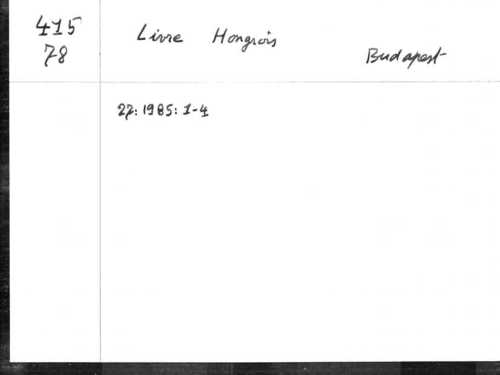 415
78
Livre Hongrois
Budapest
27: 1985: 1-4